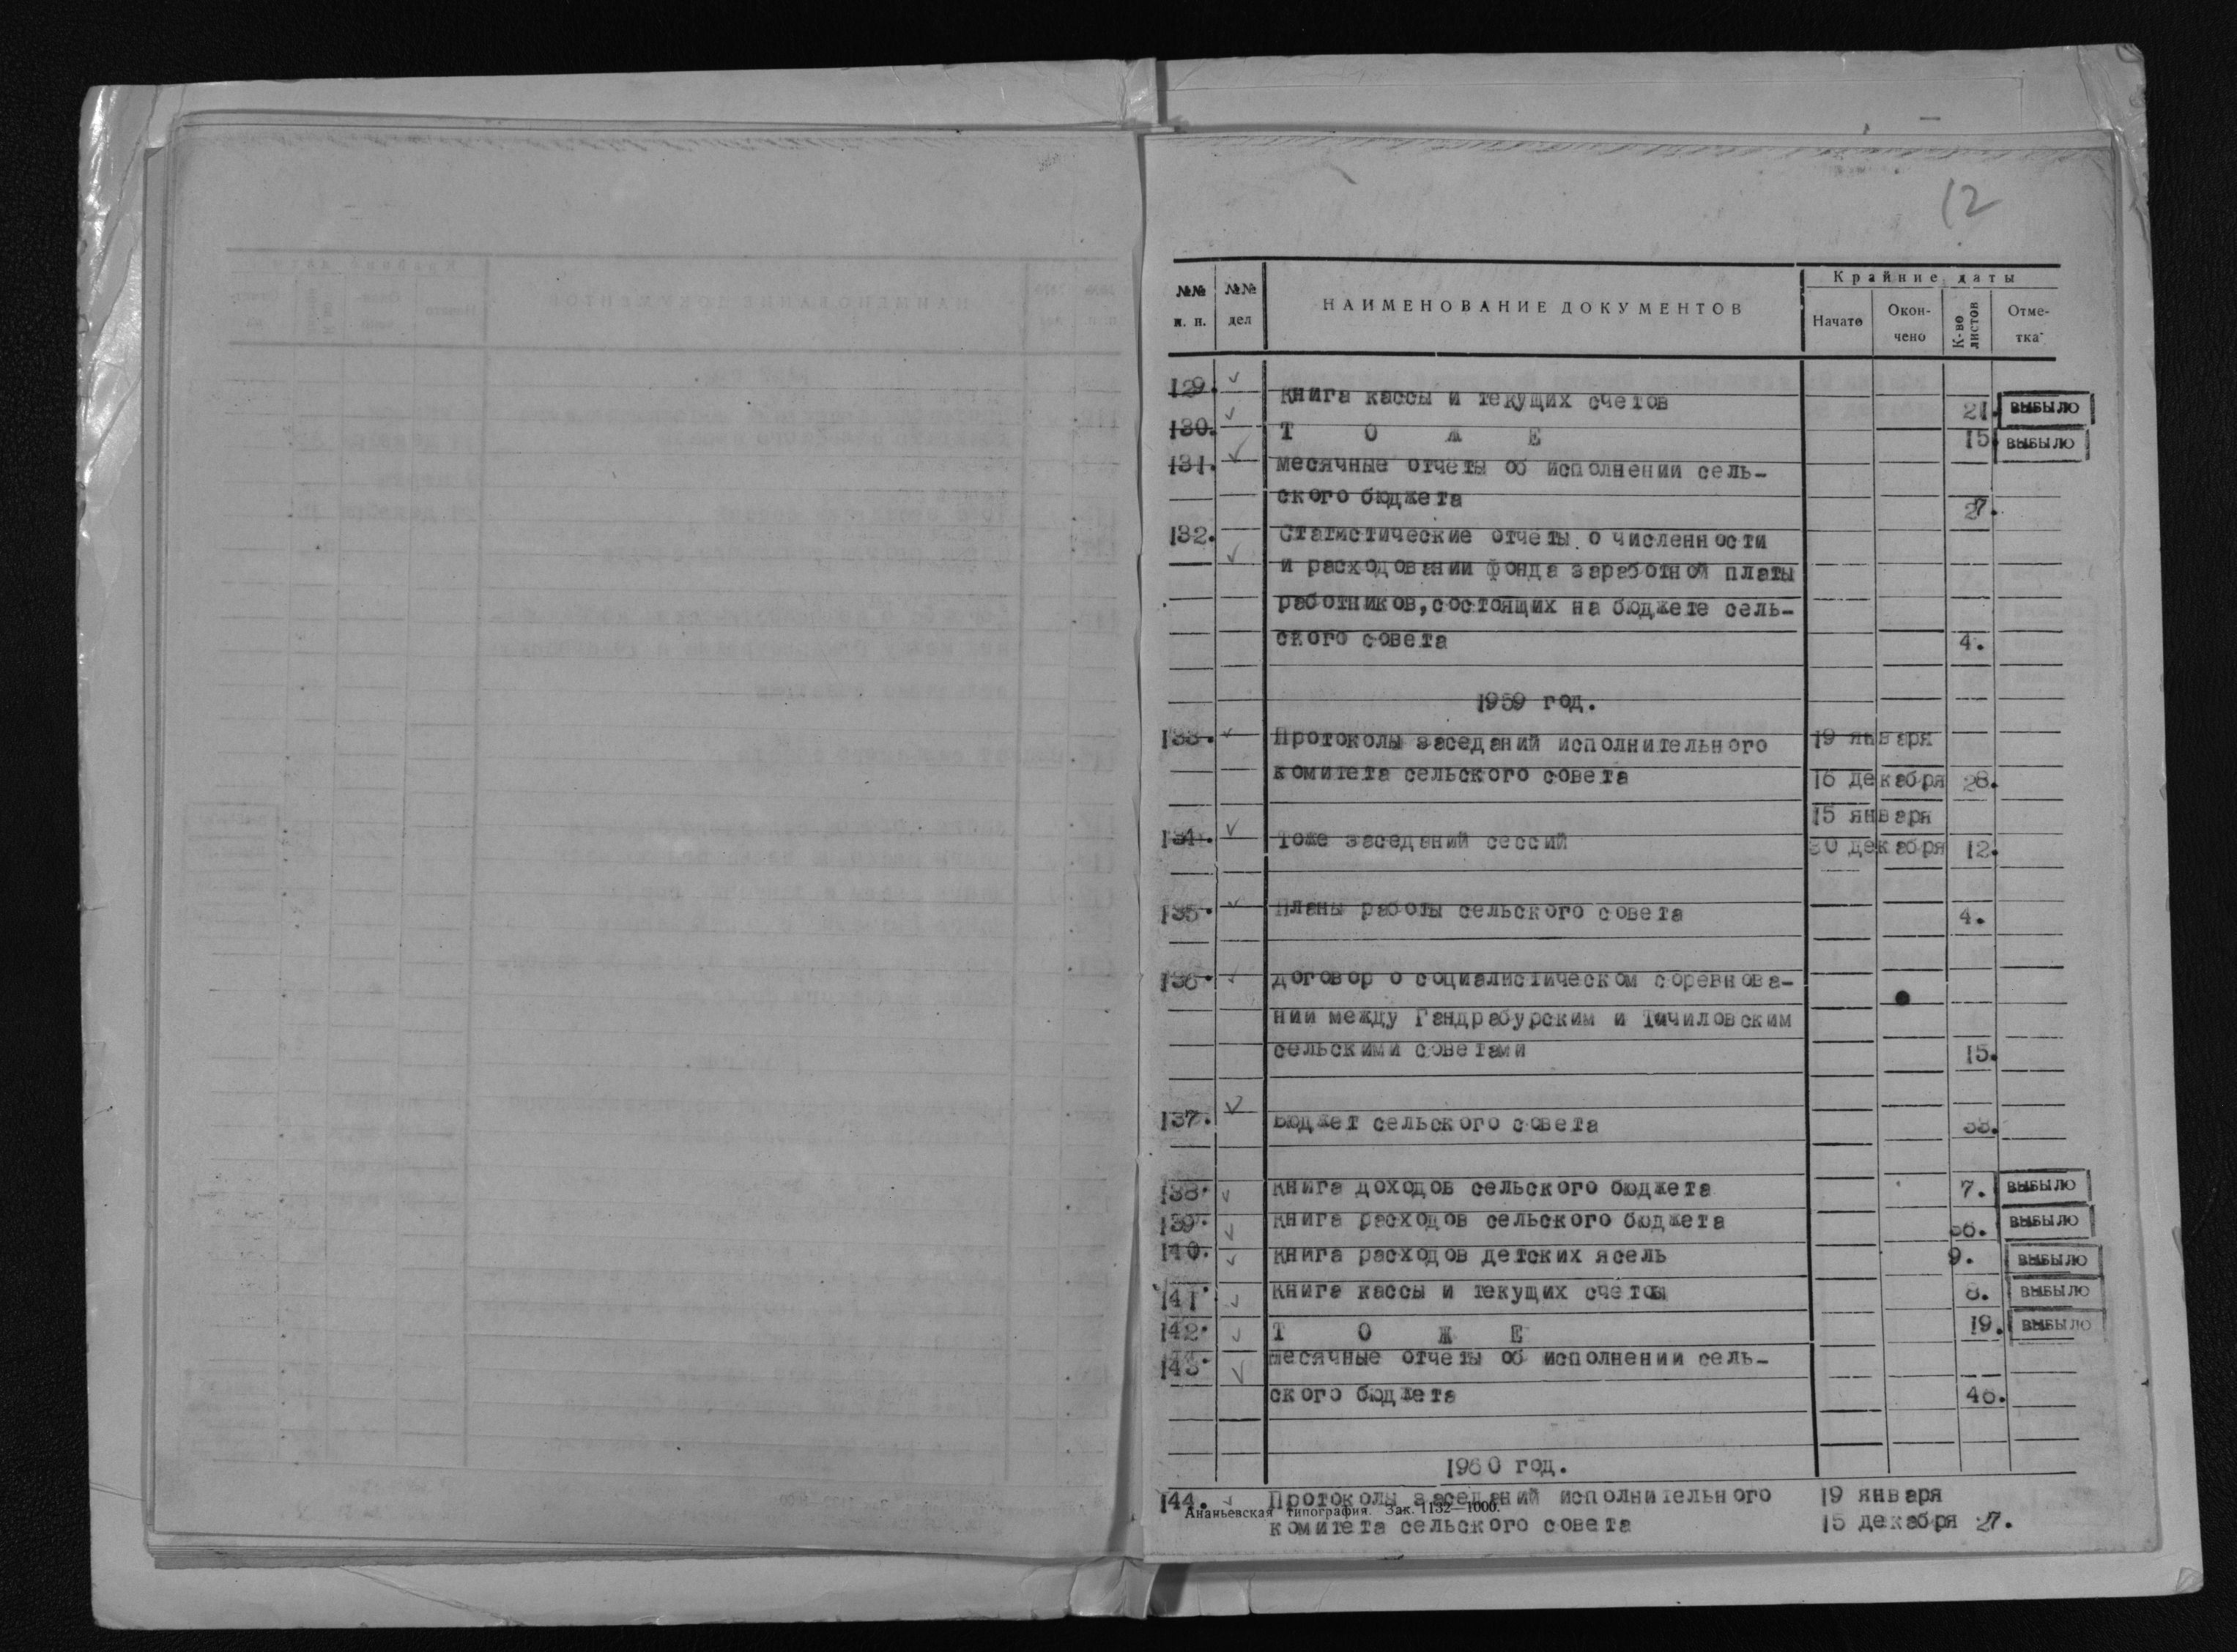 12
№№ п. п.
№№ дел
НАИМЕНОВАНИЕ ДОКУМЕНТОВ
Крайние даты
Начато
Окон-
чено
К-во листов
Отме-
тка
129. ✓ Книга кассы и текущих счетов 21. ВЫБЫЛО
130. ✓ Т О Ж Е 15 ВЫБЫЛО
131. ✓ Месячные отчеты об исполнении сель-
ского бюджета 27.
132. Статистические отчеты о численности
✓ и расходовании фонда заработной платы
работников, состоящих на бюджете сель-
ского совета 4.
1959 год.
133. ✓ Протоколы заседаний исполнительного 19 января
комитета сельского совета 16 декабря 28.
15 января
134. ✓ Тоже заседаний сессий 30 декабря 12.
135. ✓ Планы работы сельского совета 4.
136. ✓ Договор о социалистическом соревнова-
нии между Гандрабурским и Точиловским
сельскими советами 15.
137. ✓ Бюджет сельского совета
138. ✓ Книга доходов сельского бюджета 7. ВЫБЫЛО
139. ✓ Книга расходов сельского бюджета 36. ВЫБЫЛО
140. ✓ Книга расходов детских ясель 9. ВЫБЫЛО
141. ✓ Книга кассы и текущих счетов 8. ВЫБЫЛО
142. ✓ Т О Ж Е 19. ВЫБЫЛО
143. ✓ Месячные отчеты об исполнении сель-
ского бюджета 46.
1960 год.
144. ✓ Протоколы заседаний исполнительного 19 января
Ананьевская типография. Зак. 1132—1000.
комитета сельского совета 15 декабря 27.